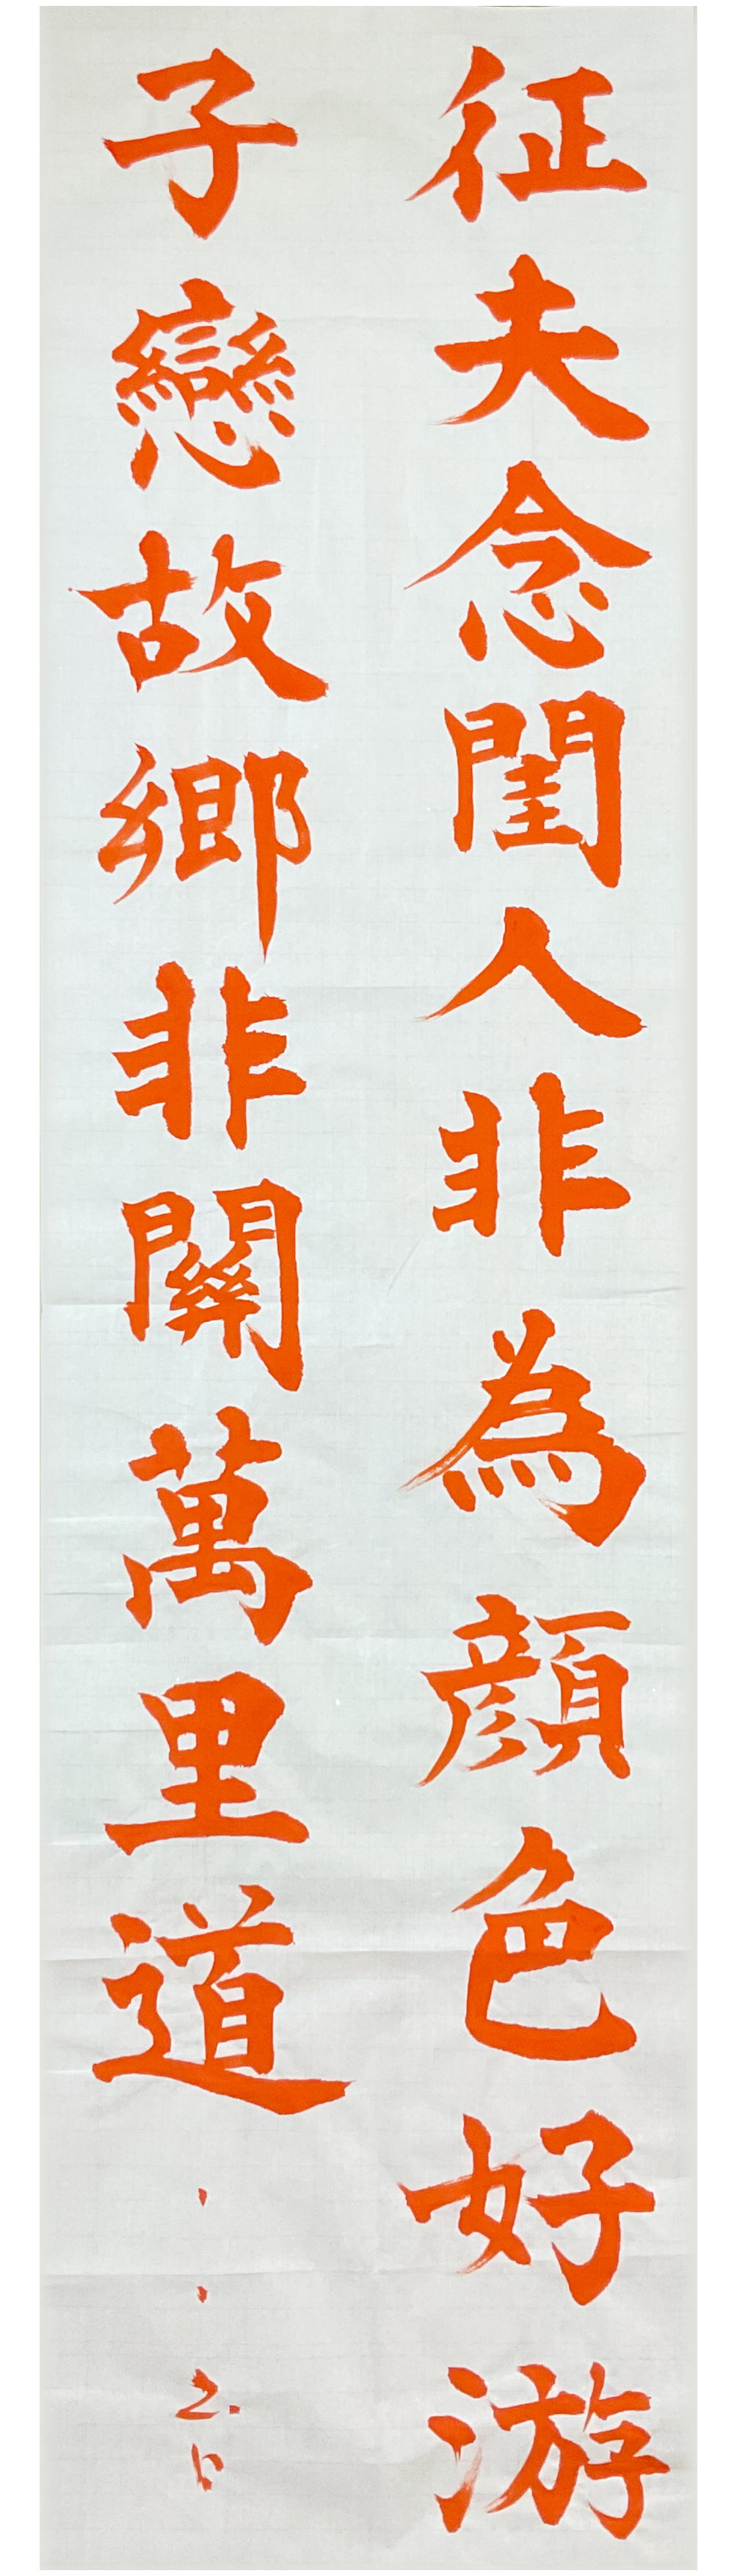 征夫念閨人非為顔色好游
子戀故鄉非關萬里道